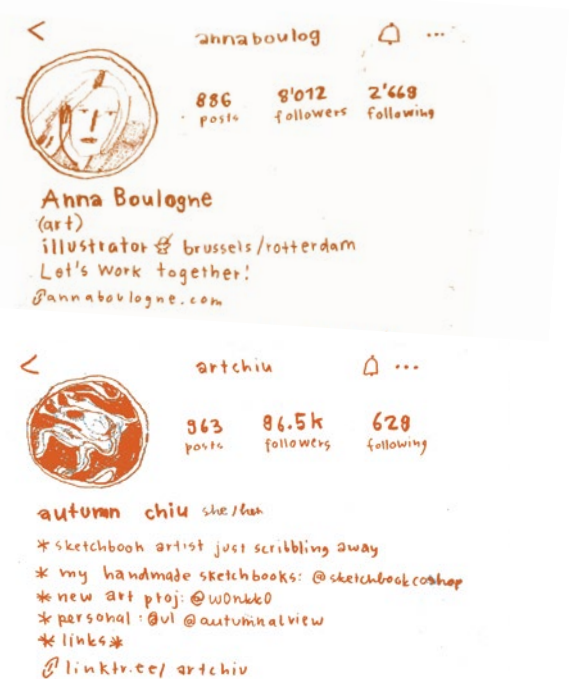 annaboulog
886 8'012 2'668
posts followers following
Anna Boulogne
(art)
illustrator brussels/rotterdam
Let's work together!
annaboulogne.com
artchiu
963 86.5k 628
posts followers following
autumn chiu she/her
* sketchbook artist just scribbling away
* my handmade sketchbooks: @sketchbookcoshop
* new art proj: @w0nkk0
* personal: @autumnalview
* links*
linktr.ee/artchiu